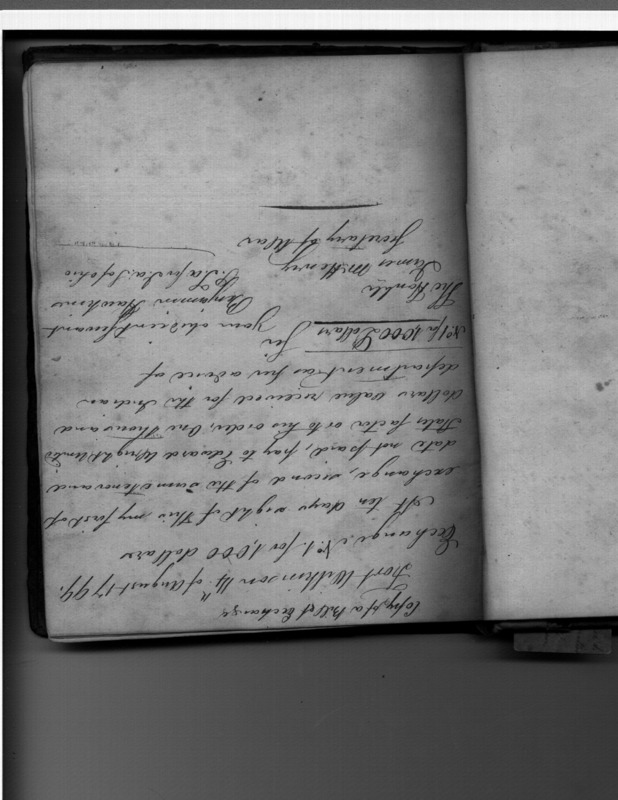 Copy of a Bill of Exchange
Fort Wilkinson 4th of August 1799.
Exchange No. 1. for 1,000 dollars
At ten days sight of this my first of
exchange, second of the same tenor and
date not paid, pay to Edward Wright United
States factor or to his order, One thousand
dollars value received for the Indian
department as per advice of
Sir
No 1 for 1,000 Dollars
your obedient servant
Benjamin Hawkins
The Honble
James McHenry
Secretary of War